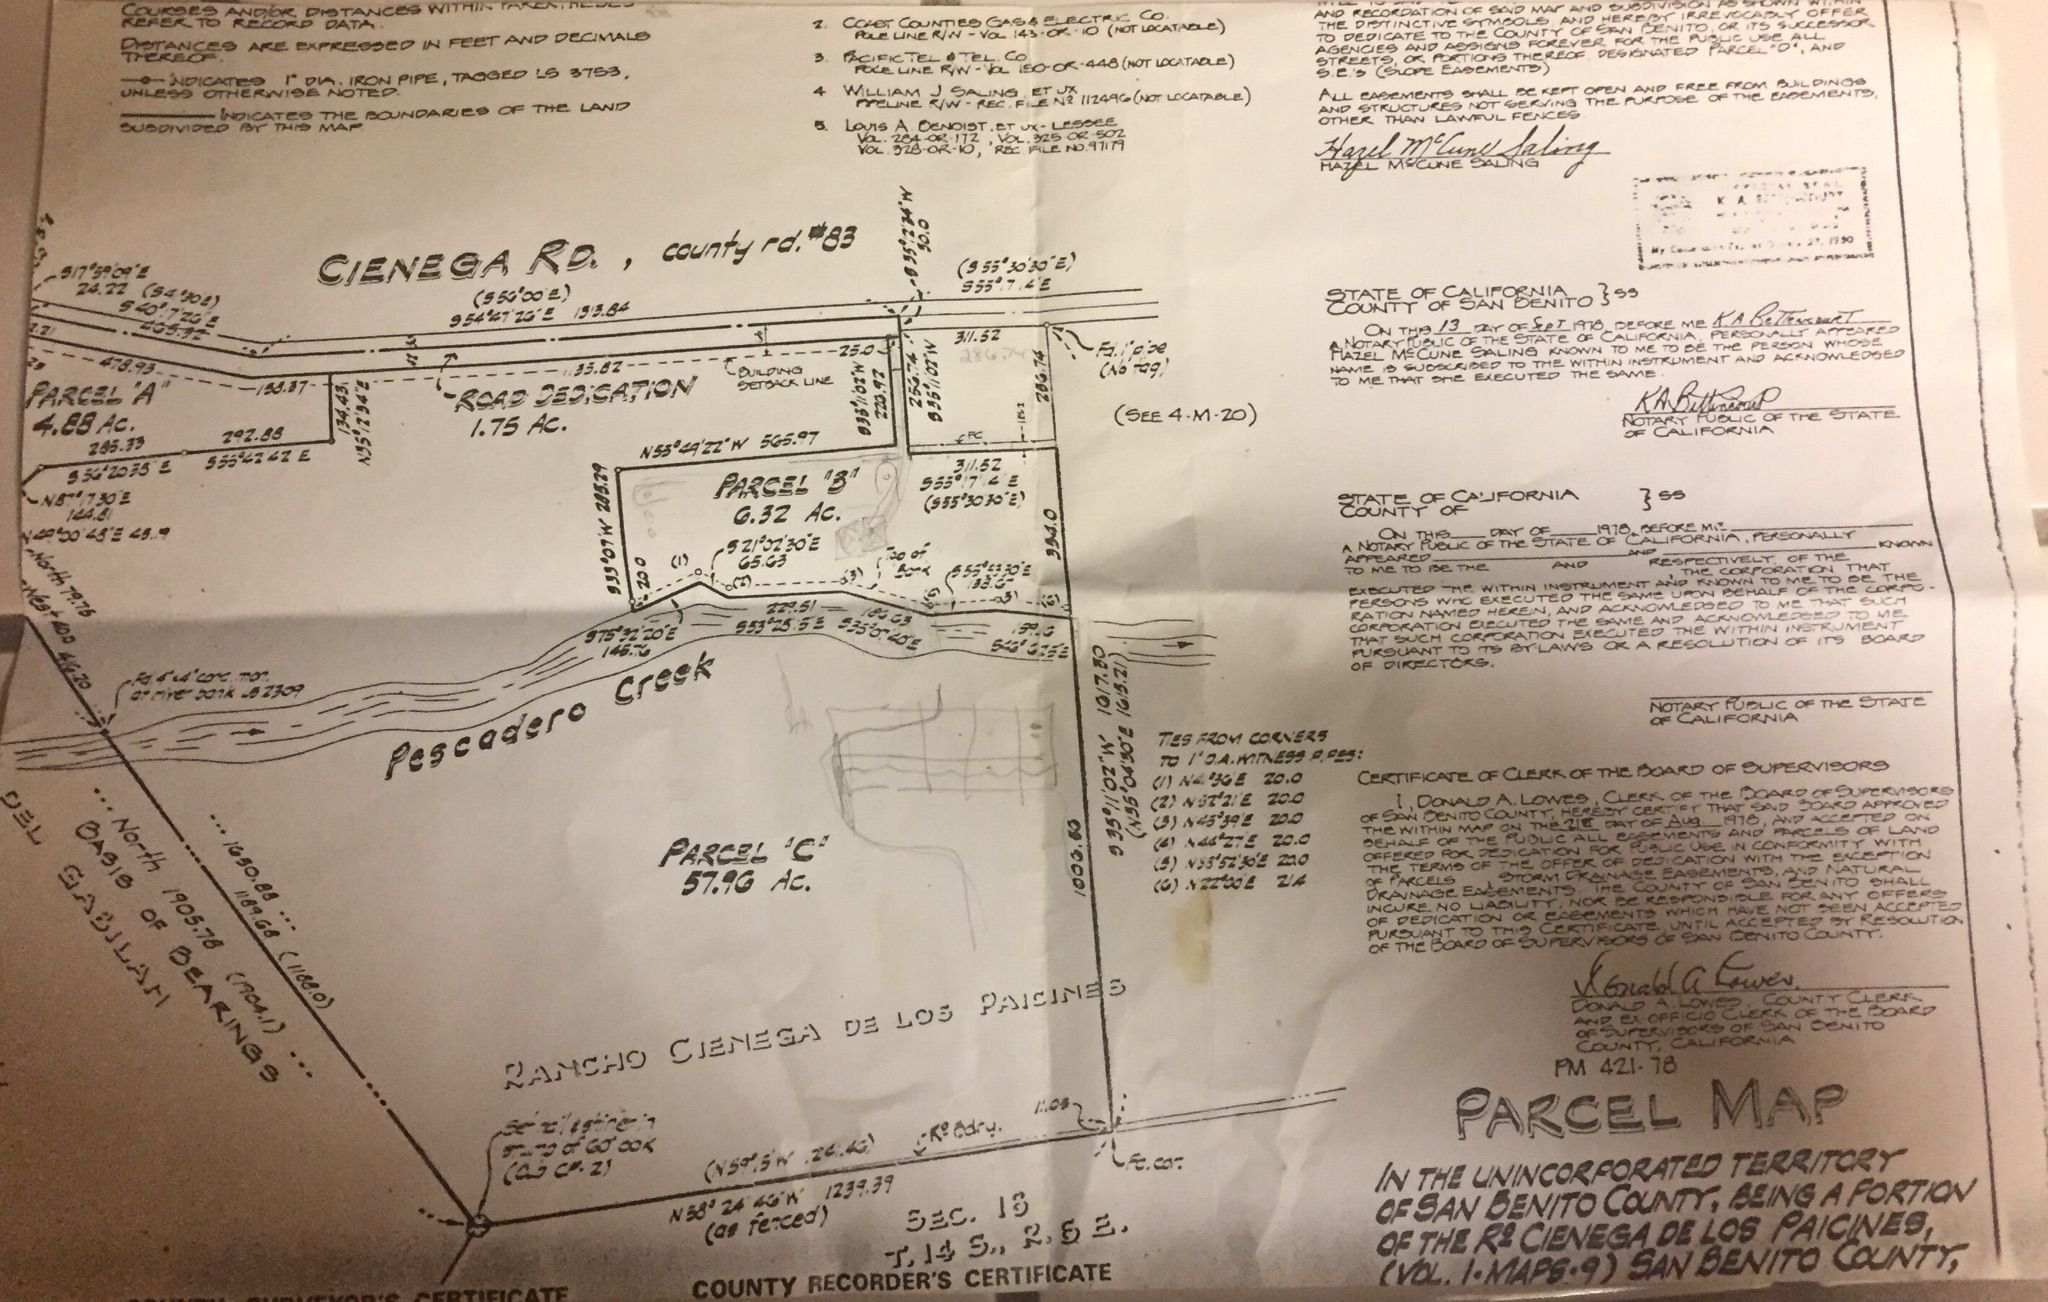 REFER TO RECORD DATA.
DISTANCES ARE EXPRESSED IN FEET AND DECIMALS
THEREOF.
INDICATES 1" DIA. IRON PIPE, TAGGED LS 3753,
UNLESS OTHERWISE NOTED.
INDICATES THE BOUNDARIES OF THE LAND
SUBDIVIDED BY THIS MAP.
2. COAST COUNTIES GAS & ELECTRIC CO.
POLE LINE R/W - VOL. 143-OR-10 (NOT LOCATABLE)
3. PACIFIC TEL & TEL. CO.
POLE LINE R/W - VOL 150-OR-448 (NOT LOCATABLE)
4 WILLIAM J SALING, ET UX
PIPELINE R/W - REC. FILE Nº 112496 (NOT LOCATABLE)
5. LOUIS A. BENOIST, ET UX - LESSEE
VOL. 284-OR-172, VOL. 325-OR-502
VOL. 328-OR-10, REC FILE NO. 97179
AND RECORDATION OF SAID MAP AND SUBDIVISION AS SHOWN WITHIN
THE DISTINCTIVE SYMBOLS, AND HEREBY IRREVOCABLY OFFER
TO DEDICATE TO THE COUNTY OF SAN BENITO, OR ITS SUCCESSOR
AGENCIES AND ASSIGNS FOREVER, FOR THE PUBLIC USE ALL
STREETS, OR PORTIONS THEREOF, DESIGNATED PARCEL "D", AND
S.E.'S (SLOPE EASEMENTS)
ALL EASEMENTS SHALL BE KEPT OPEN AND FREE FROM BUILDINGS
AND STRUCTURES NOT SERVING THE PURPOSE OF THE EASEMENTS,
OTHER THAN LAWFUL FENCES.
Hazel McCune Saling
HAZEL McCUNE SALING
STATE OF CALIFORNIA } SS
COUNTY OF SAN BENITO
ON THIS 13 DAY OF Sept 1978, BEFORE ME K A Bettencourt
A NOTARY PUBLIC OF THE STATE OF CALIFORNIA, PERSONALLY APPEARED
HAZEL McCUNE SALING KNOWN TO ME TO BE THE PERSON WHOSE
NAME IS SUBSCRIBED TO THE WITHIN INSTRUMENT AND ACKNOWLEDGED
TO ME THAT SHE EXECUTED THE SAME.
KA Bettencourt
NOTARY PUBLIC OF THE STATE
OF CALIFORNIA
STATE OF CALIFORNIA } SS
COUNTY OF
ON THIS DAY OF 1978, BEFORE ME
A NOTARY PUBLIC OF THE STATE OF CALIFORNIA, PERSONALLY
APPEARED AND KNOWN
TO ME TO BE THE AND RESPECTIVELY, OF THE
THE CORPORATION THAT
EXECUTED THE WITHIN INSTRUMENT AND KNOWN TO ME TO BE THE
PERSONS WHO EXECUTED THE SAME UPON BEHALF OF THE CORPO-
RATION NAMED HEREIN, AND ACKNOWLEDGED TO ME THAT SUCH
CORPORATION EXECUTED THE SAME AND ACKNOWLEDGED TO ME
THAT SUCH CORPORATION EXECUTED THE WITHIN INSTRUMENT
PURSUANT TO ITS BY-LAWS OR A RESOLUTION OF ITS BOARD
OF DIRECTORS.
NOTARY PUBLIC OF THE STATE
OF CALIFORNIA
CERTIFICATE OF CLERK OF THE BOARD OF SUPERVISORS
I, DONALD A. LOWES, CLERK OF THE BOARD OF SUPERVISORS
OF SAN BENITO COUNTY, HEREBY CERTIFY THAT SAID BOARD APPROVED
THE WITHIN MAP ON THE 21st DAY OF Aug 1978, AND ACCEPTED ON
BEHALF OF THE PUBLIC ALL EASEMENTS AND PARCELS OF LAND
OFFERED FOR DEDICATION FOR PUBLIC USE IN CONFORMITY WITH
THE TERMS OF THE OFFER OF DEDICATION WITH THE EXCEPTION
OF PARCELS , STORM DRAINAGE EASEMENTS, AND NATURAL
DRAINAGE EASEMENTS. THE COUNTY OF SAN BENITO SHALL
INCURE NO LIABILITY, NOR BE RESPONSIBLE FOR ANY OFFERS
OF DEDICATION OR EASEMENTS WHICH HAVE NOT BEEN ACCEPTED
PURSUANT TO THIS CERTIFICATE UNTIL ACCEPTED BY RESOLUTION
OF THE BOARD OF SUPERVISORS OF SAN BENITO COUNTY.
Donald A Lowes
DONALD A. LOWES, COUNTY CLERK
AND EX OFFICIO CLERK OF THE BOARD
OF SUPERVISORS OF SAN BENITO
COUNTY, CALIFORNIA
PM 421-78
PARCEL MAP
IN THE UNINCORPORATED TERRITORY
OF SAN BENITO COUNTY, BEING A PORTION
OF THE Rº CIENEGA DE LOS PAICINES,
(VOL. 1·MAPS·9) SAN BENITO COUNTY,
CIENEGA RD., county rd. #83
S17°59'09"E
24.22 (S4°30'E)
S40°7'26"E
(S56°00'E)
S54°47'26"E 1313.84
S55°12'34"W
50.0
(S55°30'30"E)
S55°17'4"E
311.52
Fd. 1" pipe
(No tag)
286.74
(SEE 4-M-20)
478.93
158.37
25.0
BUILDING
SETBACK LINE
ROAD DEDICATION
1.75 Ac.
PARCEL "A"
4.88 Ac.
134.43
N35°12'34"E
285.33
292.88
S36°20'35"E
S55°42'42"E
N87°17'30"E
144.81
N49°00'45"E 45.9
220.92
S35°11'02"W
256.74
N55°49'22"W 565.97
PARCEL "B"
6.32 Ac.
311.52
S55°17'4"E
(S55°30'30"E)
S33°07'W 285.29
20.0
S21°02'30"E
65.63
Top of
Bank
334.0
S75°32'20"E
145.76
229.51
Pescadero Creek
North 79.76
Fd. 4"x4" conc. mon.
at river bank LS 2309
PARCEL "C"
57.96 Ac.
1006.80
S35°11'02"W 1017.80
TIES FROM CORNERS
TO 1" DIA. WITNESS PIPES:
(1) N4°36'E 20.0
(2) N52°21'E 20.0
(3) N45°39'E 20.0
(4) N44°27'E 20.0
(5) N33°52'30"E 20.0
(6) N22°00'E 21.4
DEL GABILAN
North 1905.78 (1904.1)
BASIS OF BEARINGS
1650.88
1189.68 (1188.0)
RANCHO CIENEGA DE LOS PAICINES
Rº Bdry.
11.08
Fd. cor.
N58°24'46"W 1239.39
(as fenced)
SEC. 13
T. 14 S., R. 5 E.
COUNTY RECORDER'S CERTIFICATE
COUNTY SURVEYOR'S CERTIFICATE